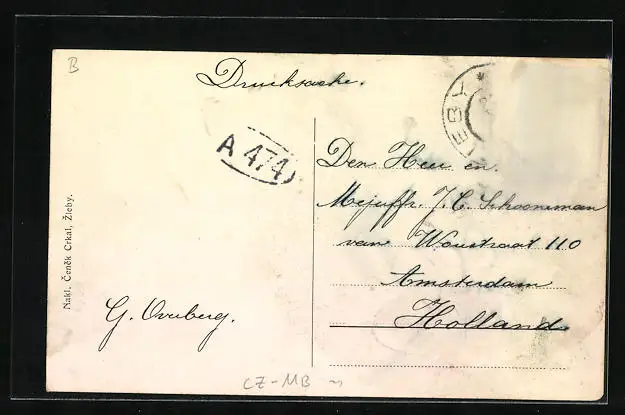 B
Drucksache.
EBY *
A 474
Den Heer en.
Mejuffr. J. C. Schooneman
van Woustraat 110
Amsterdam
Holland
G. Overberg.
Nakl. Čeněk Crkal, Žleby.
CZ-MB